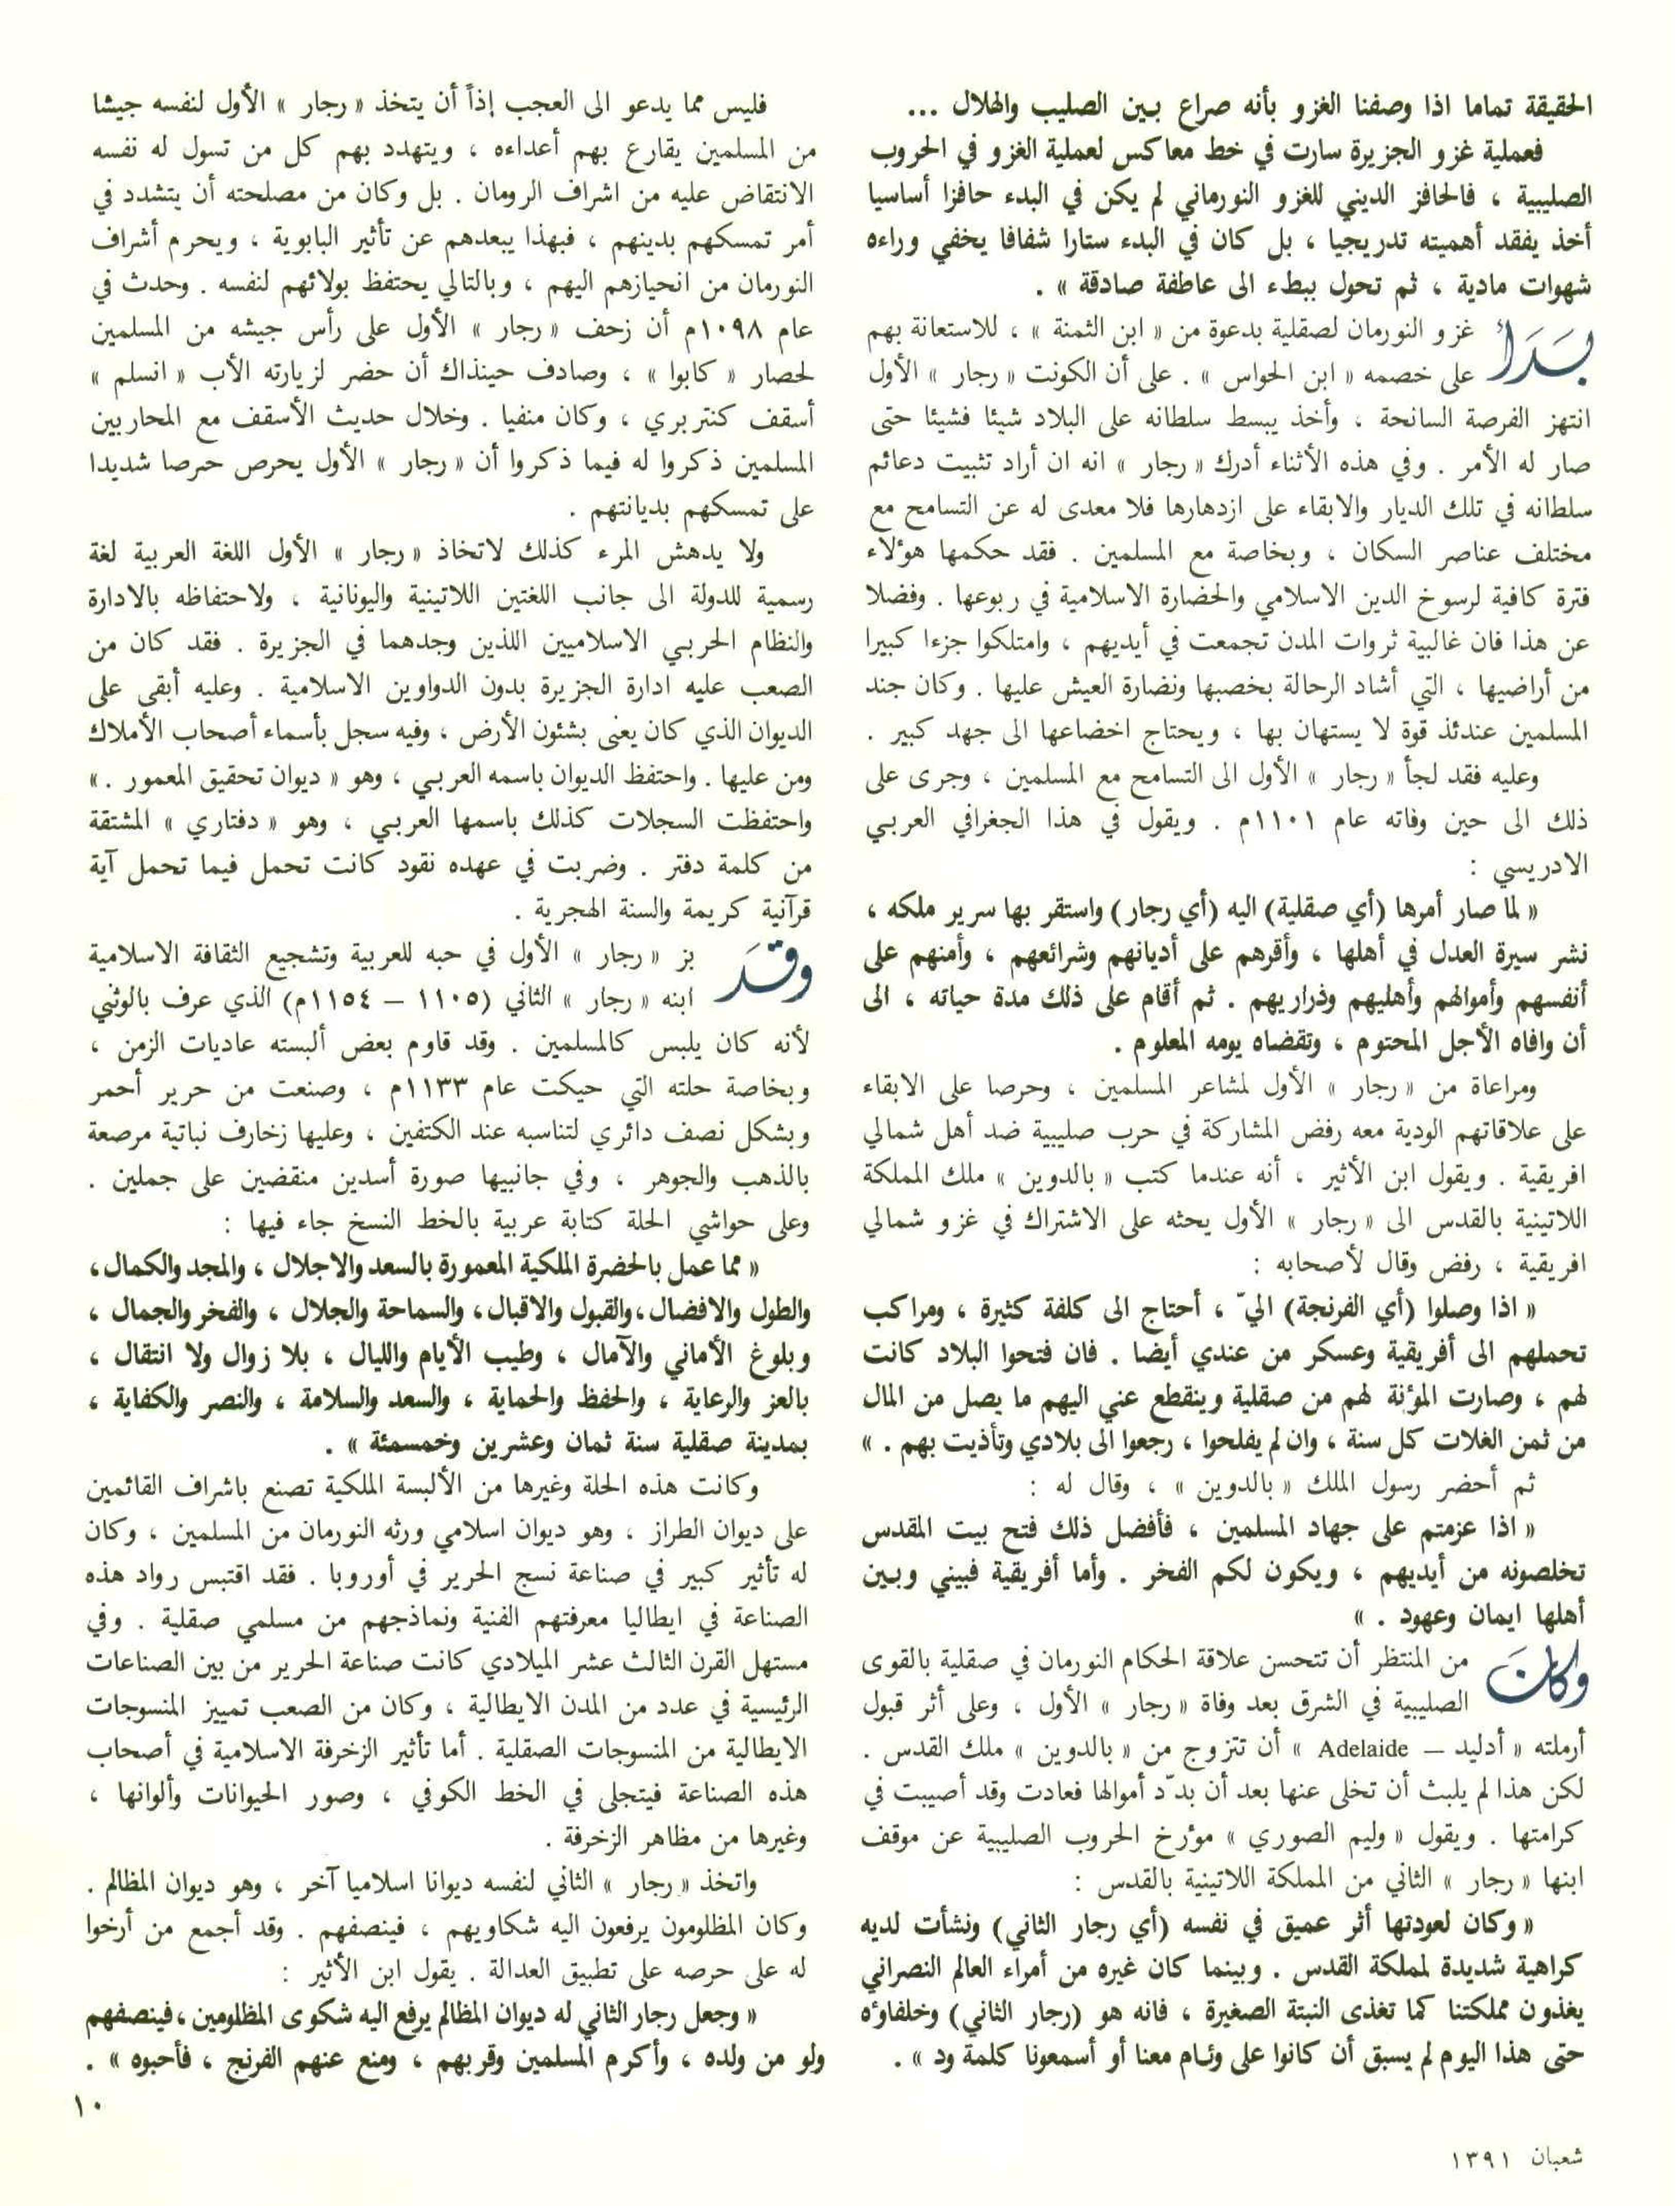 الحقيقة تماما اذا وصفنا الغزو بأنه صراع بين الصليب والهلال ...
فعملية غزو الجزيرة سارت في خط معاكس لعملية الغزو في الحروب
الصليبية ، فالحافز الديني للغزو النورماني لم يكن في البدء حافزا أساسيا
أخذ يفقد أهميته تدريجيا ، بل كان في البدء ستارا شفافا يخفي وراءه
شهوات مادية ، ثم تحول ببطء الى عاطفة صادقة » .
بَدَأ غزو النورمان لصقلية بدعوة من « ابن الثمنة » ، للاستعانة بهم
على خصمه « ابن الحواس » . على أن الكونت « رجار » الأول
انتهز الفرصة السانحة ، وأخذ يبسط سلطانه على البلاد شيئا فشيئا حتى
صار له الأمر . وفي هذه الأثناء أدرك « رجار » انه ان أراد تثبيت دعائم
سلطانه في تلك الديار والابقاء على ازدهارها فلا معدى له عن التسامح مع
مختلف عناصر السكان ، وبخاصة مع المسلمين . فقد حكمها هؤلاء
فترة كافية لرسوخ الدين الاسلامي والحضارة الاسلامية في ربوعها . وفضلا
عن هذا فان غالبية ثروات المدن تجمعت في أيديهم ، وامتلكوا جزءا كبيرا
من أراضيها ، التي أشاد الرحالة بخصبها ونضارة العيش عليها . وكان جند
المسلمين عندئذ قوة لا يستهان بها ، ويحتاج اخضاعها الى جهد كبير .
وعليه فقد لجأ « رجار » الأول الى التسامح مع المسلمين ، وجرى على
ذلك الى حين وفاته عام ١١٠١م . ويقول في هذا الجغرافي العربي
الادريسي :
« لما صار أمرها (أي صقلية) اليه (أي رجار) واستقر بها سرير ملكه ،
نشر سيرة العدل في أهلها ، وأقرهم على أديانهم وشرائعهم ، وأمنهم على
أنفسهم وأموالهم وأهليهم وذراريهم . ثم أقام على ذلك مدة حياته ، الى
أن وافاه الأجل المحتوم ، وتقضاه يومه المعلوم .
ومراعاة من « رجار » الأول لمشاعر المسلمين ، وحرصا على الابقاء
على علاقاتهم الودية معه رفض المشاركة في حرب صليبية ضد أهل شمالي
افريقية . ويقول ابن الأثير ، أنه عندما كتب « بالدوين » ملك المملكة
اللاتينية بالقدس الى « رجار » الأول يحثه على الاشتراك في غزو شمالي
افريقية ، رفض وقال لأصحابه :
« اذا وصلوا (أي الفرنجة) اليّ ، أحتاج الى كلفة كثيرة ، ومراكب
تحملهم الى أفريقية وعسكر من عندي أيضا . فان فتحوا البلاد كانت
لهم ، وصارت المؤنة لهم من صقلية وينقطع عني اليهم ما يصل من المال
من ثمن الغلات كل سنة ، وان لم يفلحوا ، رجعوا الى بلادي وتأذيت بهم . »
ثم أحضر رسول الملك « بالدوين » ، وقال له :
« اذا عزمتم على جهاد المسلمين ، فأفضل ذلك فتح بيت المقدس
تخلصونه من أيديهم ، ويكون لكم الفخر . وأما أفريقية فبيني وبين
أهلها ايمان وعهود . »
وكانَ من المنتظر أن تتحسن علاقة الحكام النورمان في صقلية بالقوى
الصليبية في الشرق بعد وفاة « رجار » الأول ، وعلى أثر قبول
أرملته « أدليد – Adelaide » أن تتزوج من « بالدوين » ملك القدس .
لكن هذا لم يلبث أن تخلى عنها بعد أن بدّد أموالها فعادت وقد أصيبت في
كرامتها . ويقول « وليم الصوري » مؤرخ الحروب الصليبية عن موقف
ابنها « رجار » الثاني من المملكة اللاتينية بالقدس :
« وكان لعودتها أثر عميق في نفسه (أي رجار الثاني) ونشأت لديه
كراهية شديدة لمملكة القدس . وبينما كان غيره من أمراء العالم النصراني
يغذون مملكتنا كما تغذى النبتة الصغيرة ، فانه هو (رجار الثاني) وخلفاؤه
حتى هذا اليوم لم يسبق أن كانوا على وئام معنا أو أسمعونا كلمة ود » .
فليس مما يدعو الى العجب إذاً أن يتخذ « رجار » الأول لنفسه جيشا
من المسلمين يقارع بهم أعداءه ، ويتهدد بهم كل من تسول له نفسه
الانتقاض عليه من اشراف الرومان . بل وكان من مصلحته أن يتشدد في
أمر تمسكهم بدينهم ، فبهذا يبعدهم عن تأثير البابوية ، ويحرم أشراف
النورمان من انحيازهم اليهم ، وبالتالي يحتفظ بولائهم لنفسه . وحدث في
عام ١٠٩٨م أن زحف « رجار » الأول على رأس جيشه من المسلمين
لحصار « كابوا » ، وصادف حينذاك أن حضر لزيارته الأب « انسلم »
أسقف كنتربري ، وكان منفيا . وخلال حديث الأسقف مع المحاربين
المسلمين ذكروا له فيما ذكروا أن « رجار » الأول يحرص حرصا شديدا
على تمسكهم بديانتهم .
ولا يدهش المرء كذلك لاتخاذ « رجار » الأول اللغة العربية لغة
رسمية للدولة الى جانب اللغتين اللاتينية واليونانية ، ولاحتفاظه بالادارة
والنظام الحربي الاسلاميين اللذين وجدهما في الجزيرة . فقد كان من
الصعب عليه ادارة الجزيرة بدون الدواوين الاسلامية . وعليه أبقى على
الديوان الذي كان يعنى بشئون الأرض ، وفيه سجل بأسماء أصحاب الأملاك
ومن عليها . واحتفظ الديوان باسمه العربي ، وهو « ديوان تحقيق المعمور . »
واحتفظت السجلات كذلك باسمها العربي ، وهو « دفتاري » المشتقة
من كلمة دفتر . وضربت في عهده نقود كانت تحمل فيما تحمل آية
قرآنية كريمة والسنة الهجرية .
وقدَ بز « رجار » الأول في حبه للعربية وتشجيع الثقافة الاسلامية
ابنه « رجار » الثاني (١١٠٥ – ١١٥٤م) الذي عرف بالوثني
لأنه كان يلبس كالمسلمين . وقد قاوم بعض ألبسته عاديات الزمن ،
وبخاصة حلته التي حيكت عام ١١٣٣م ، وصنعت من حرير أحمر
وبشكل نصف دائري لتناسبه عند الكتفين ، وعليها زخارف نباتية مرصعة
بالذهب والجوهر ، وفي جانبيها صورة أسدين منقضين على جملين .
وعلى حواشي الحلة كتابة عربية بالخط النسخ جاء فيها :
« مما عمل بالحضرة الملكية المعمورة بالسعد والاجلال ، والمجد والكمال،
والطول والافضال، والقبول والاقبال، والسماحة والجلال ، والفخر والجمال ،
وبلوغ الأماني والآمال ، وطيب الأيام والليال ، بلا زوال ولا انتقال ،
بالعز والرعاية ، والحفظ والحماية ، والسعد والسلامة ، والنصر والكفاية ،
بمدينة صقلية سنة ثمان وعشرين وخمسمئة » .
وكانت هذه الحلة وغيرها من الألبسة الملكية تصنع باشراف القائمين
على ديوان الطراز ، وهو ديوان اسلامي ورثه النورمان من المسلمين ، وكان
له تأثير كبير في صناعة نسج الحرير في أوروبا . فقد اقتبس رواد هذه
الصناعة في ايطاليا معرفتهم الفنية ونماذجهم من مسلمي صقلية . وفي
مستهل القرن الثالث عشر الميلادي كانت صناعة الحرير من بين الصناعات
الرئيسية في عدد من المدن الايطالية ، وكان من الصعب تمييز المنسوجات
الايطالية من المنسوجات الصقلية . أما تأثير الزخرفة الاسلامية في أصحاب
هذه الصناعة فيتجلى في الخط الكوفي ، وصور الحيوانات وألوانها ،
وغيرها من مظاهر الزخرفة .
واتخذ « رجار » الثاني لنفسه ديوانا اسلاميا آخر ، وهو ديوان المظالم .
وكان المظلومون يرفعون اليه شكاويهم ، فينصفهم . وقد أجمع من أرخوا
له على حرصه على تطبيق العدالة . يقول ابن الأثير :
« وجعل رجار الثاني له ديوان المظالم يرفع اليه شكوى المظلومين ، فينصفهم
ولو من ولده ، وأكرم المسلمين وقربهم ، ومنع عنهم الفرنج ، فأحبوه » .
١٠
شعبان ١٣٩١